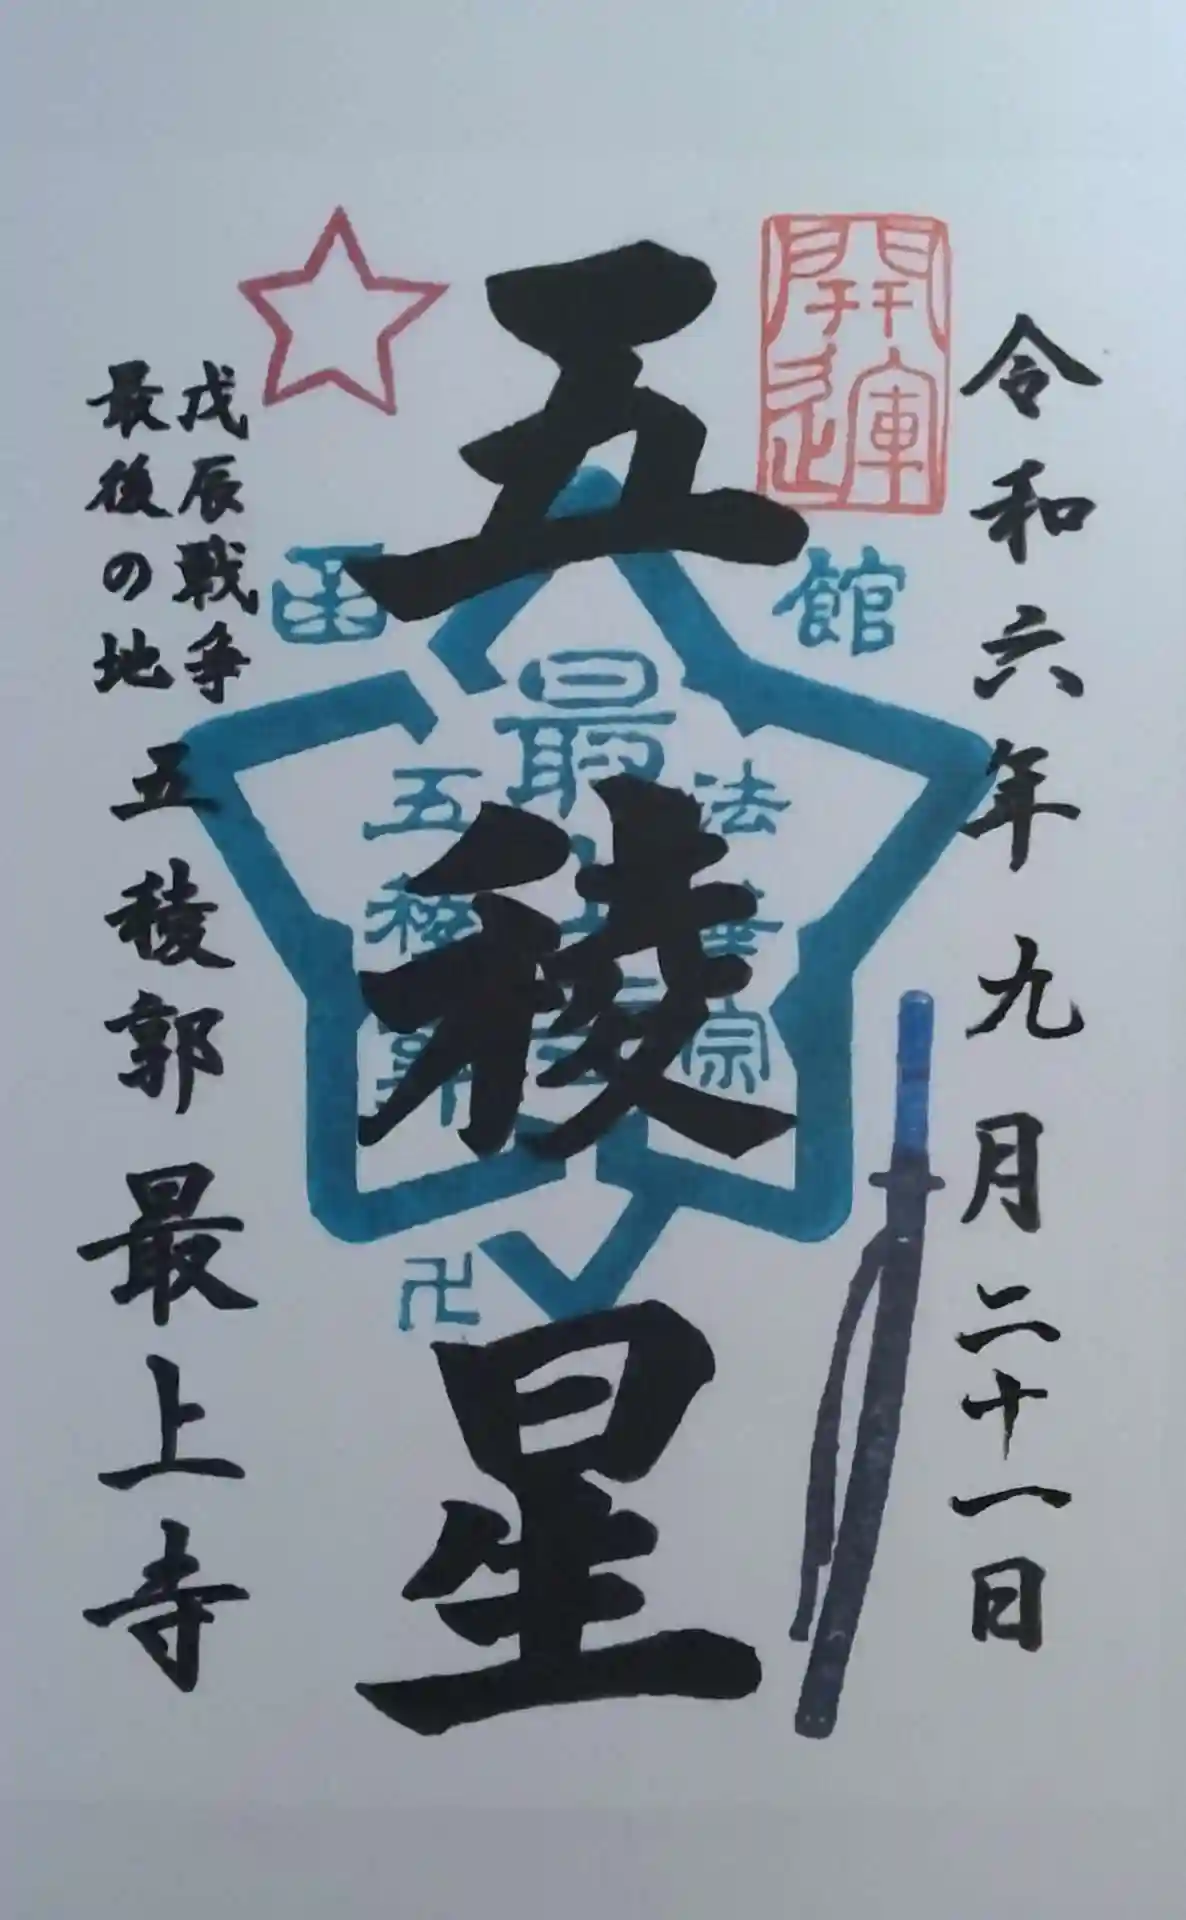 令和六年九月二十一日
開運
五稜星
函館
法華宗
最上寺
五稜郭
卍
戊辰戦争
最後の地
五稜郭 最上寺